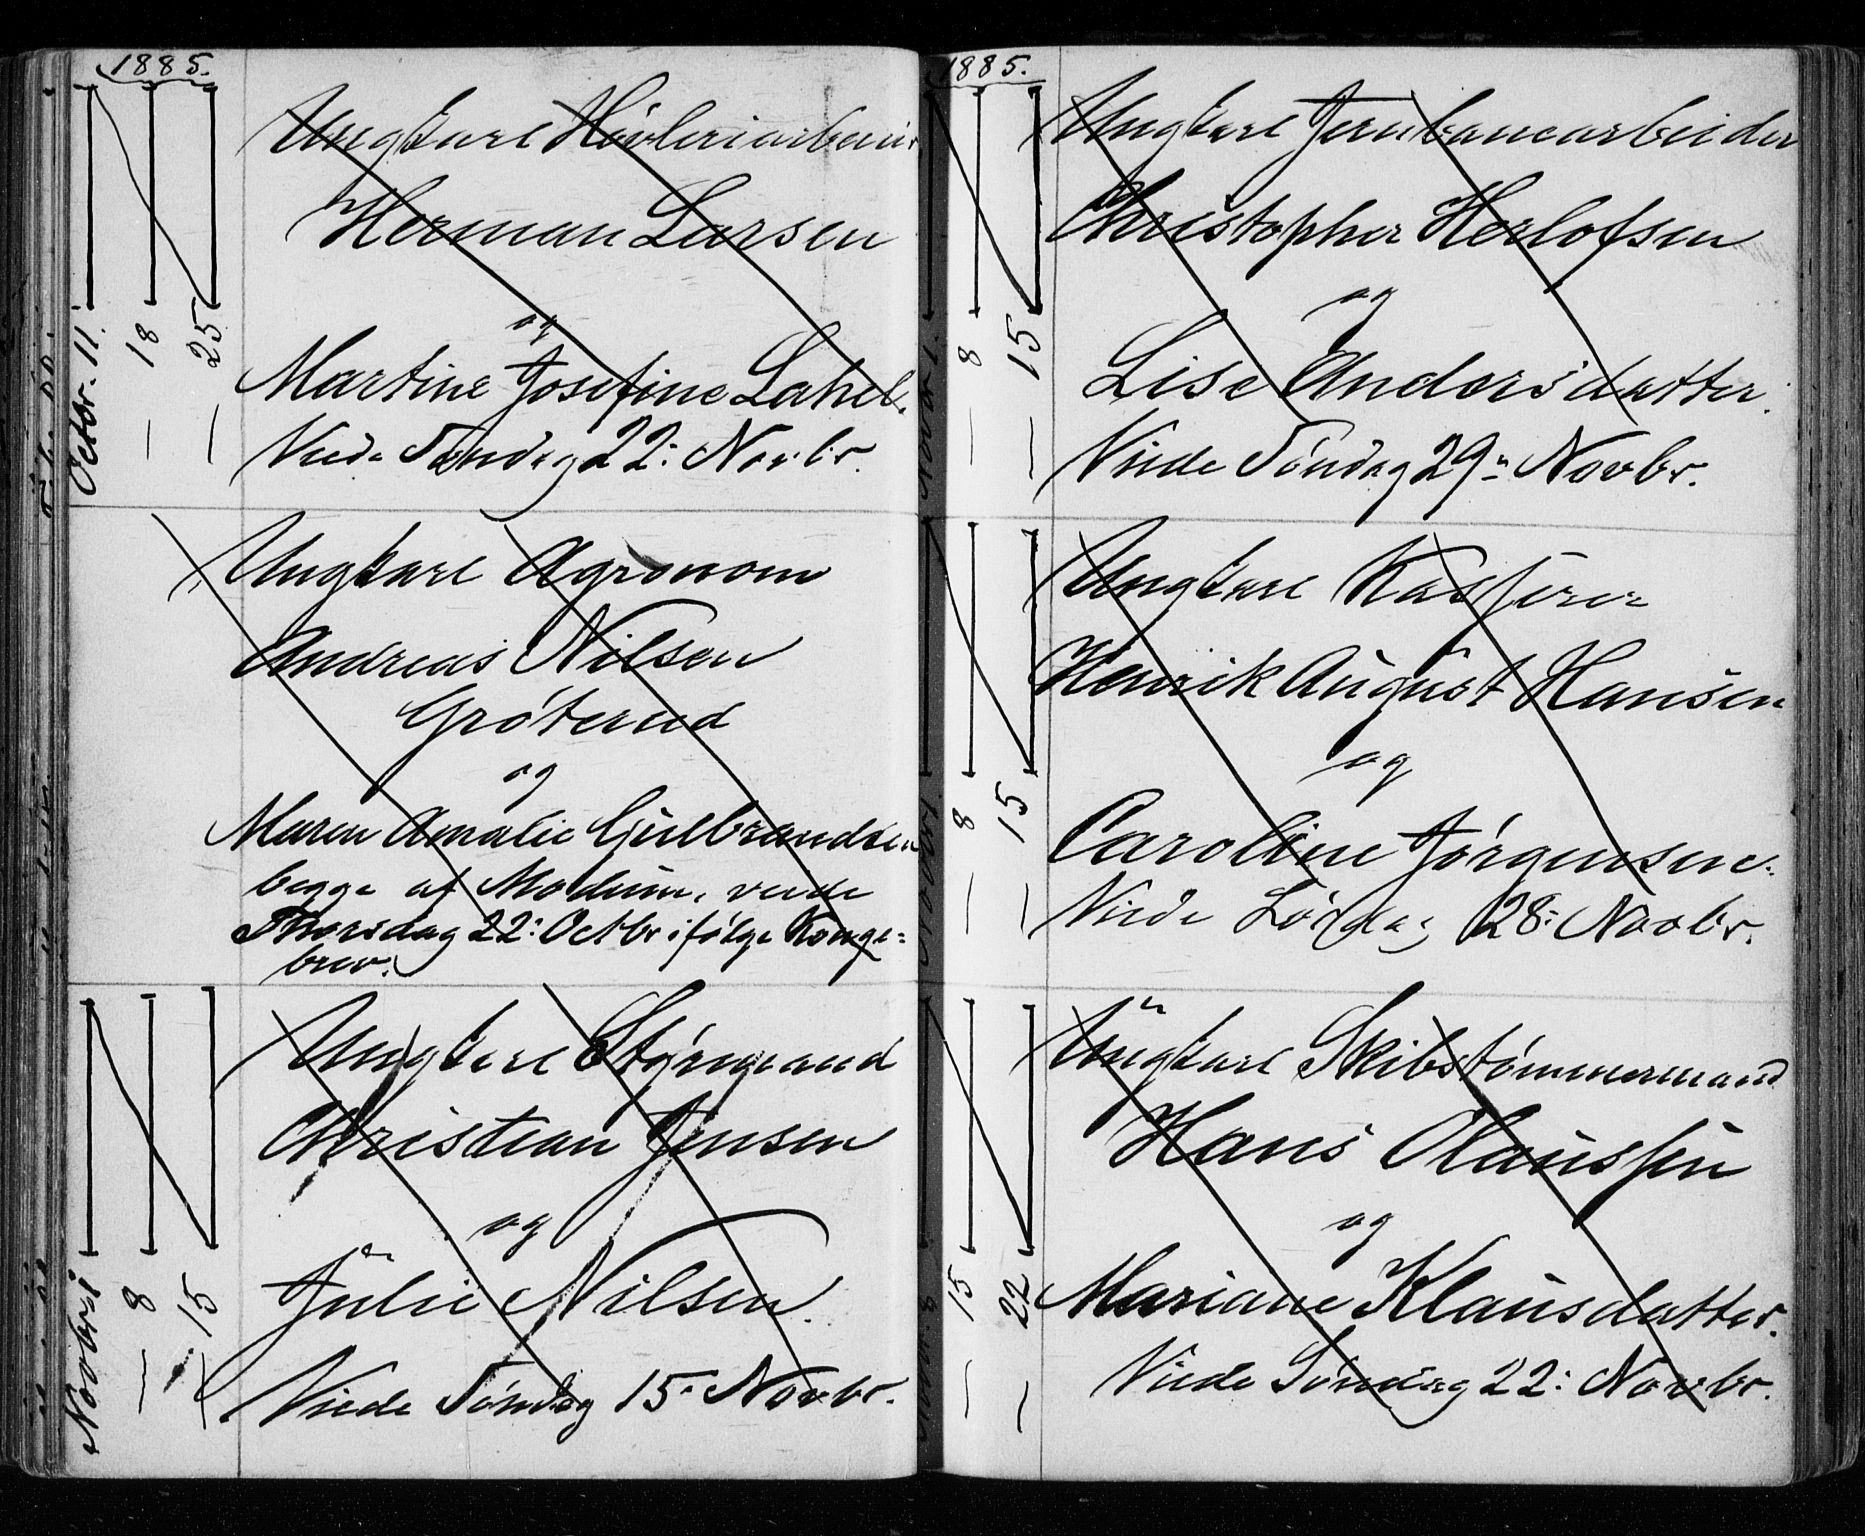 1885.
Octbr. 11.
— 18
— 25
Ungkarl Høvleriarbeider
Herman Larsen
og
Martine Josefine Lahell.
Viede Søndag 22: Novbr.
Ungkarl Agronom
Andreas Nilsen
Grøterud
og
Maren Amalie Gulbrandsen
begge af Modum, viede
Thorsdag 22: Octbr ifølge Konge=
brev.
Novbr 1
— 8
— 15
Ungkarl Styrmand
Christian Jensen
og
Julie Nilsen.
Viede Søndag 15: Novbr.
1885.
— 8
— 15
Ungkarl Jernbanearbeider
Christopher Herlofsen
og
Lise Andersdatter.
Viede Søndag 29: Novbr.
— 8
— 15
Ungkarl Kasserer
Henrik August Hansen
og
Caroline Jørgensen.
Viede Lørdag 28: Novbr.
— 15
— 22
Ungkarl Skibstømmermand
Hans Olaussen
og
Mariane Klausdatter.
Viede Søndag 22: Novbr.